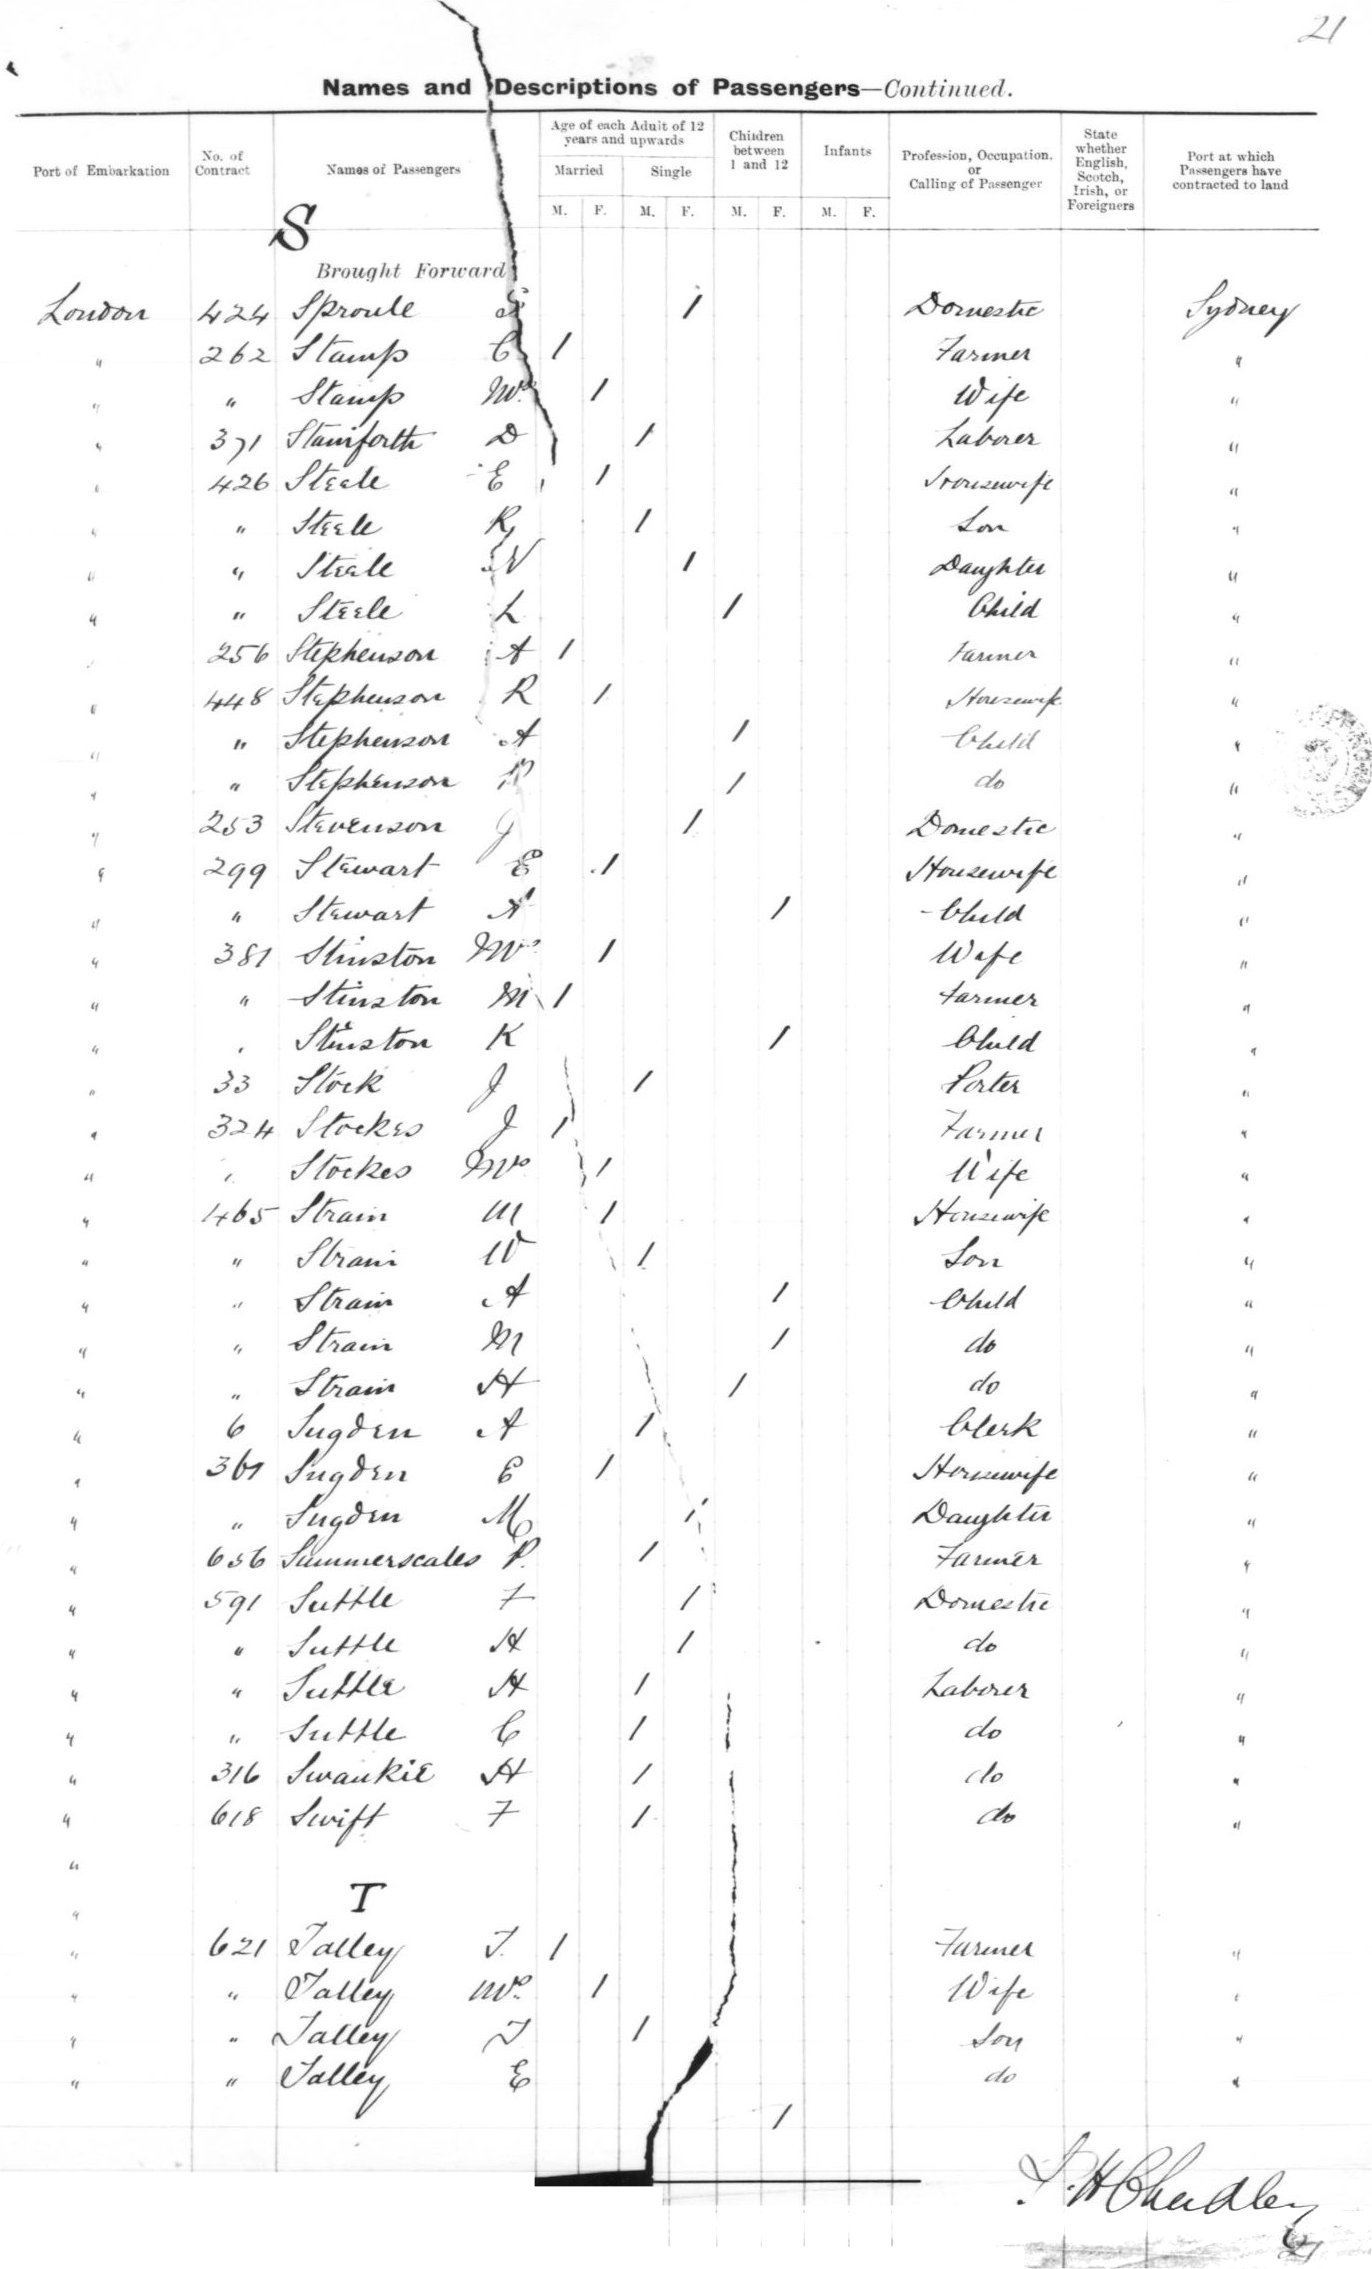 21
Names and Descriptions of Passengers—Continued.
Port of Embarkation No. of Contract Names of Passengers Age of each Adult of 12 years and upwards Married M. F. Single M. F. Children between 1 and 12 M. F. Infants M. F. Profession, Occupation, or Calling of Passenger State whether English, Scotch, Irish, or Foreigners Port at which Passengers have contracted to land
S
Brought Forward
London 424 Sproule 1 Domestic Sydney
" 262 Stamp C 1 Farmer "
" " Stamp Mrs 1 Wife "
" 371 Staniforth D 1 Laborer "
" 426 Steele E 1 Housewife "
" " Steele R 1 Son "
" " Steele 1 Daughter "
" " Steele L 1 Child "
" 256 Stephenson A 1 Farmer "
" 448 Stephenson R 1 Housewife "
" " Stephenson A 1 Child "
" " Stephenson 1 do "
" 253 Stevenson J 1 Domestic "
" 299 Stewart E 1 Housewife "
" " Stewart A 1 Child "
" 381 Stinston Mrs 1 Wife "
" " Stinston M 1 Farmer "
" " Stinston K 1 Child "
" 33 Stock J 1 Porter "
" 324 Stockes J 1 Farmer "
" " Stockes Mrs 1 Wife "
" 465 Strain M 1 Housewife "
" " Strain W 1 Son "
" " Strain A 1 Child "
" " Strain M 1 do "
" " Strain H 1 do "
" 6 Sugden A 1 Clerk "
" 361 Sugden E 1 Housewife "
" " Sugden M 1 Daughter "
" 656 Summerscales P. 1 Farmer "
" 591 Suttle F 1 Domestic "
" " Suttle H 1 do "
" " Suttle H 1 Laborer "
" " Suttle C 1 do "
" 316 Swankie H 1 do "
" 618 Swift F 1 do "
"
" T
" 621 Talley T. 1 Farmer "
" " Talley Mrs 1 Wife "
" " Talley T 1 Son "
" " Talley E do "
1
H Chudley
21